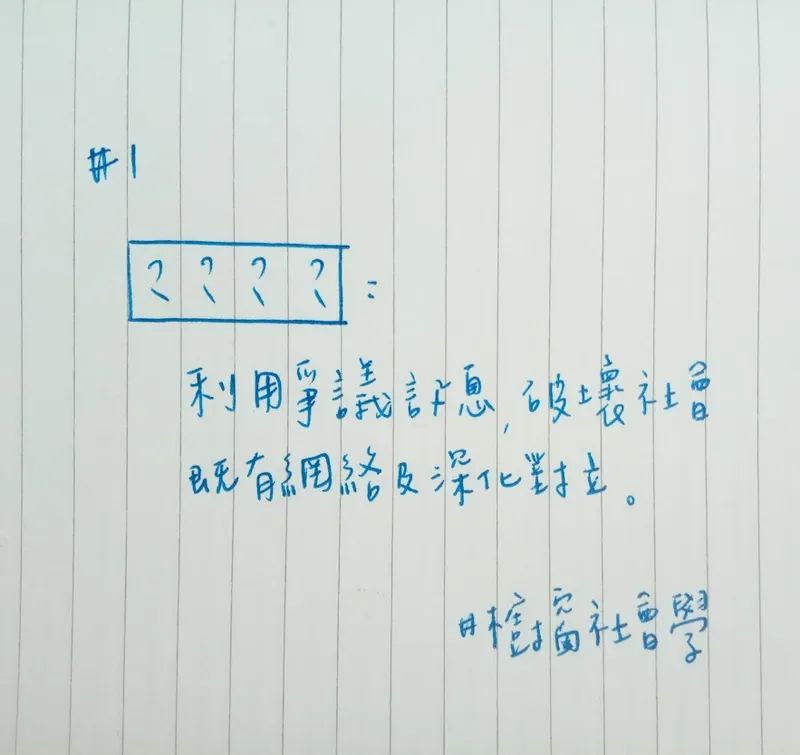 #1
? ? ? ? :
利用爭議訊息,破壞社會
既有網絡及深化對立。
#樹窗社會學